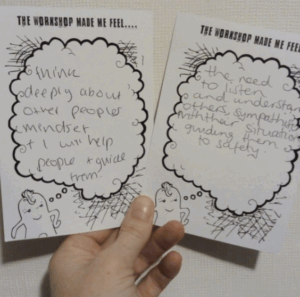 THE WORKSHOP MADE ME FEEL....
think
deeply about
other peoples
mindset
+ I will help
people + guide
them
THE WORKSHOP MADE ME FEEL
the need
to listen
and understand
others sympathise
with their situation
guiding them
to safety.